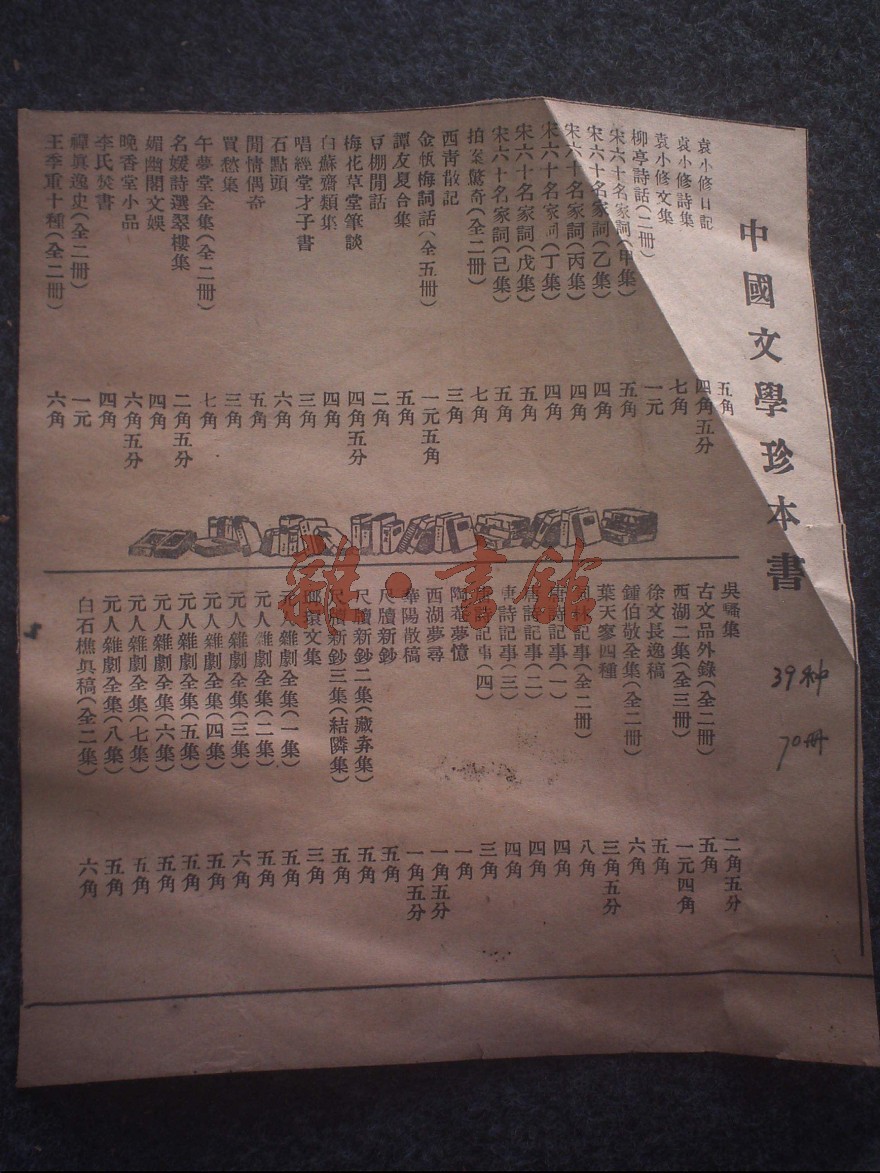 中國文學珍本書
袁小修日記 五角
袁小修詩集 四角五分
袁小修文集 七角
柳亭詩話(二冊) 一元
宋六十名家詞(甲集) 五角
宋六十名家詞(乙集) 四角
宋六十名家詞(丙集) 四角
宋六十名家詞(丁集) 四角
宋六十名家詞(戊集) 五角
宋六十名家詞(己集) 五角
拍案驚奇(全二冊) 七角
西青散記 三角
金瓶梅詞話(全五冊) 一元五角
譚友夏合集 五角
豆棚閒話 二角
梅花草堂筆談 四角五分
白蘇齋類集 四角
唱經堂才子書 三角
石點頭 六角
閒情偶奇 五角
買愁集 三角
午夢堂全集(全二冊) 七角
名媛詩選翠樓集 二角五分
媚幽閣文娛 四角
晚香堂小品 六角五分
李氏焚書 四角
禪眞逸史(全二冊) 一元
王季重十種(全二冊) 六角
吳騷集 二角五分
古文品外錄(全二冊) 五角
西湖二集(全三冊) 一元四角
徐文長逸稿 五角
鍾伯敬全集(全二冊) 六角
葉天寥四種 三角五分
林記事(全二冊) 八角
唐詩記事(一) 四角
唐詩記事(二) 四角
唐詩記事(三) 四角
唐詩記事(四) 三角
陶菴夢憶 一角
西湖夢尋 一角五分
華陽散稿 一角五分
尺牘新鈔 五角
尺牘新鈔二集(藏弆集) 五角
尺牘新鈔三集(結隣集) 五角
瑯嬛文集 三角
元人雜劇全集(一集) 五角
元人雜劇全集(二集) 五角
元人雜劇全集(三集) 六角
元人雜劇全集(四集) 五角
元人雜劇全集(五集) 五角
元人雜劇全集(六集) 五角
元人雜劇全集(七集) 五角
元人雜劇全集(八集) 五角
白石樵眞稿(全二集) 六角
39种
70册
雜·書館